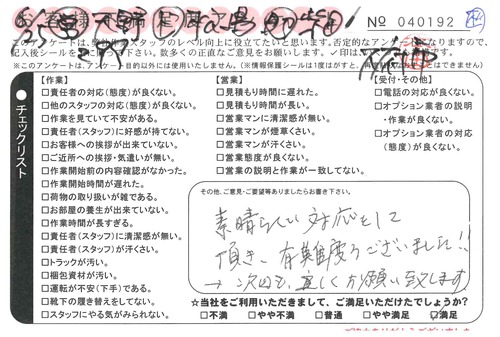 No 040192
このアンケートは、弊社作業スタッフのレベル向上に役立てたいと思います。否定的なアンケートになりますので、
記入後シールをお貼り下さい。数多くの正直なご意見をお聞かせ下さい。✓印はいくつ
※このアンケートは、アンケート目的以外には使用いたしません。(※情報保護シールは1度はがすと、再
●チェックリスト
【作業】
□責任者の対応(態度)が良くない。
□他のスタッフの対応(態度)が良くない。
□作業を見ていて不安がある。
□責任者(スタッフ)に好感が持てない。
□お客様への挨拶が出来ていない。
□ご近所への挨拶・気遣いが無い。
□作業開始前の内容確認がなかった。
□作業開始時間が遅れた。
□荷物の取り扱いが雑である。
□お部屋の養生が出来ていない。
□作業時間が長すぎる。
□責任者(スタッフ)に清潔感が無い。
□責任者(スタッフ)が汗くさい。
□トラックが汚い。
□梱包資材が汚い。
□運転が不安(下手)である。
□靴下の履き替えをしてない。
□スタッフにやる気がみられない。
【営業】
□見積もり時間に遅れた。
□見積もり時間が長い。
□営業マンに清潔感が無い。
□営業マンが煙草くさい。
□営業マンが汗くさい。
□営業態度が良くない。
□営業の説明と作業が一致してない。
【受付・その他】
□電話の対応が良くない。
□オプション業者の説明
・作業が良くない。
□オプション業者の対応
(態度)が良くない。
その他、ご意見・ご要望等ありましたらお書き下さい。
素晴らしい対応をして
頂き、有難度うございました!!
→次回も、宜しくお願い致します
☆当社をご利用いただきまして、ご満足いただけたでしょうか?
□不満 □やや不満 □普通 □やや満足 ☑満足